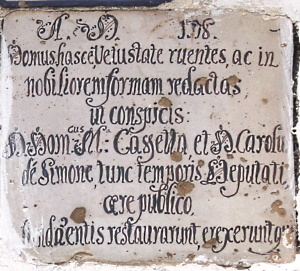 A. D. 178.
Domus hasce, Vetustate ruentes, ac in
nobiliorem formam redactas
in conspicis:
D. Dom:cus M.: Casella et D. Carolu
de Simone, tunc temporis Deputati
ære publico,
entis restaurarunt, erexerunt q;